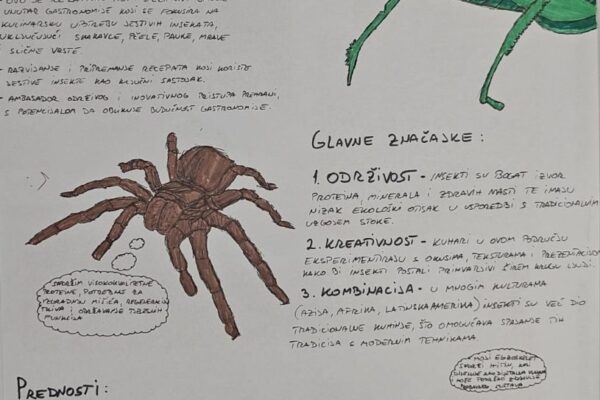 UNUTAR GASTRONOMIJE KOJI SE FOKUSIRA NA
KULINARSKU UPOTREBU JESTIVIH INSEKATA,
UKLJUČUJUĆI SKAKAVCE, PČELE, PAUKE, MRAVE
I SLIČNE VRSTE.
- RAZVIJANJE I PRIPREMANJE RECEPATA KOJI KORISTE
JESTIVE INSEKTE KAO KLJUČNI SASTOJAK.
- AMBASADOR ODRŽIVOG I INOVATIVNOG PRISTUPA PREHRANI,
S POTENCIJALOM DA OBLIKUJE BUDUĆNOST GASTRONOMIJE.
:)
SADRŽIM VISOKOKVALITETNE
PROTEINE, POTREBNE ZA
IZGRADNJU MIŠIĆA, REGENERACIJU
TKIVA I ODRŽAVANJE TJELESNIH
FUNKCIJA
PREDNOSTI:
GLAVNE ZNAČAJKE:
1. ODRŽIVOST - INSEKTI SU BOGAT IZVOR
PROTEINA, MINERALA I ZDRAVIH MASTI TE IMAJU
NIZAK EKOLOŠKI OTISAK U USPOREDBI S TRADICIONALNIM
UZGOJEM STOKE.
2. KREATIVNOST - KUHARI U OVOM PODRUČJU
EKSPERIMENTIRAJU S OKUSIMA, TEKSTURAMA I PREZENTACIJOM
KAKO BI INSEKTI POSTALI PRIHVATLJIVI ŠIREM KRUGU LJUDI.
3. KOMBINACIJA - U MNOGIM KULTURAMA
(AZIJA, AFRIKA, LATINSKA AMERIKA) INSEKTI SU VEĆ DIO
TRADICIONALNE KUHINJE, ŠTO OMOGUĆAVA SPAJANJE TIH
TRADICIJA S MODERNIM TEHNIKAMA.
MOJ EGZOSKELET
SADRŽI HITIN, KOJI
DJELUJE KAO DIJETALNA VLAKNA
MOŽE